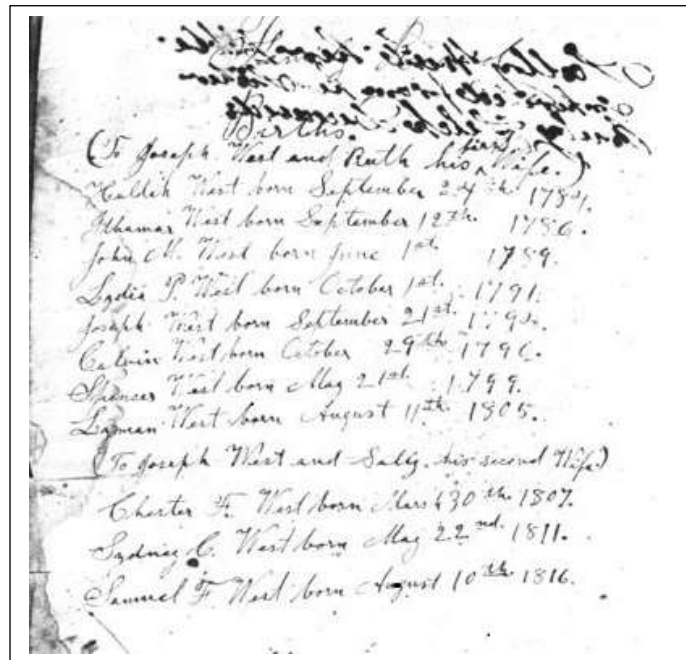 Births.
(To Joseph West and Ruth his first Wife.)
West born September 24th 1784.
Ithamar West born September 12th. 1786.
John M. West born June 1st. 1789.
Lydia P. West born October 1st. 1791.
Joseph West born September 21st.
Calvin West born October 29th. 1796.
Spencer West born May 21st. 1799.
Lyman West born August 11th. 1805.
(To Joseph West and Sally his second Wife.)
Chester F. West born March 30th. 1807.
Sydney C. West born May 22nd. 1811.
Samuel F. West born August 10th. 1816.